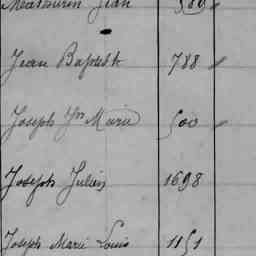 Mathurin Jean 589
Jean Baptiste 788
Joseph Marie 500
Joseph Julien 1698
Joseph Marie Louis 1151